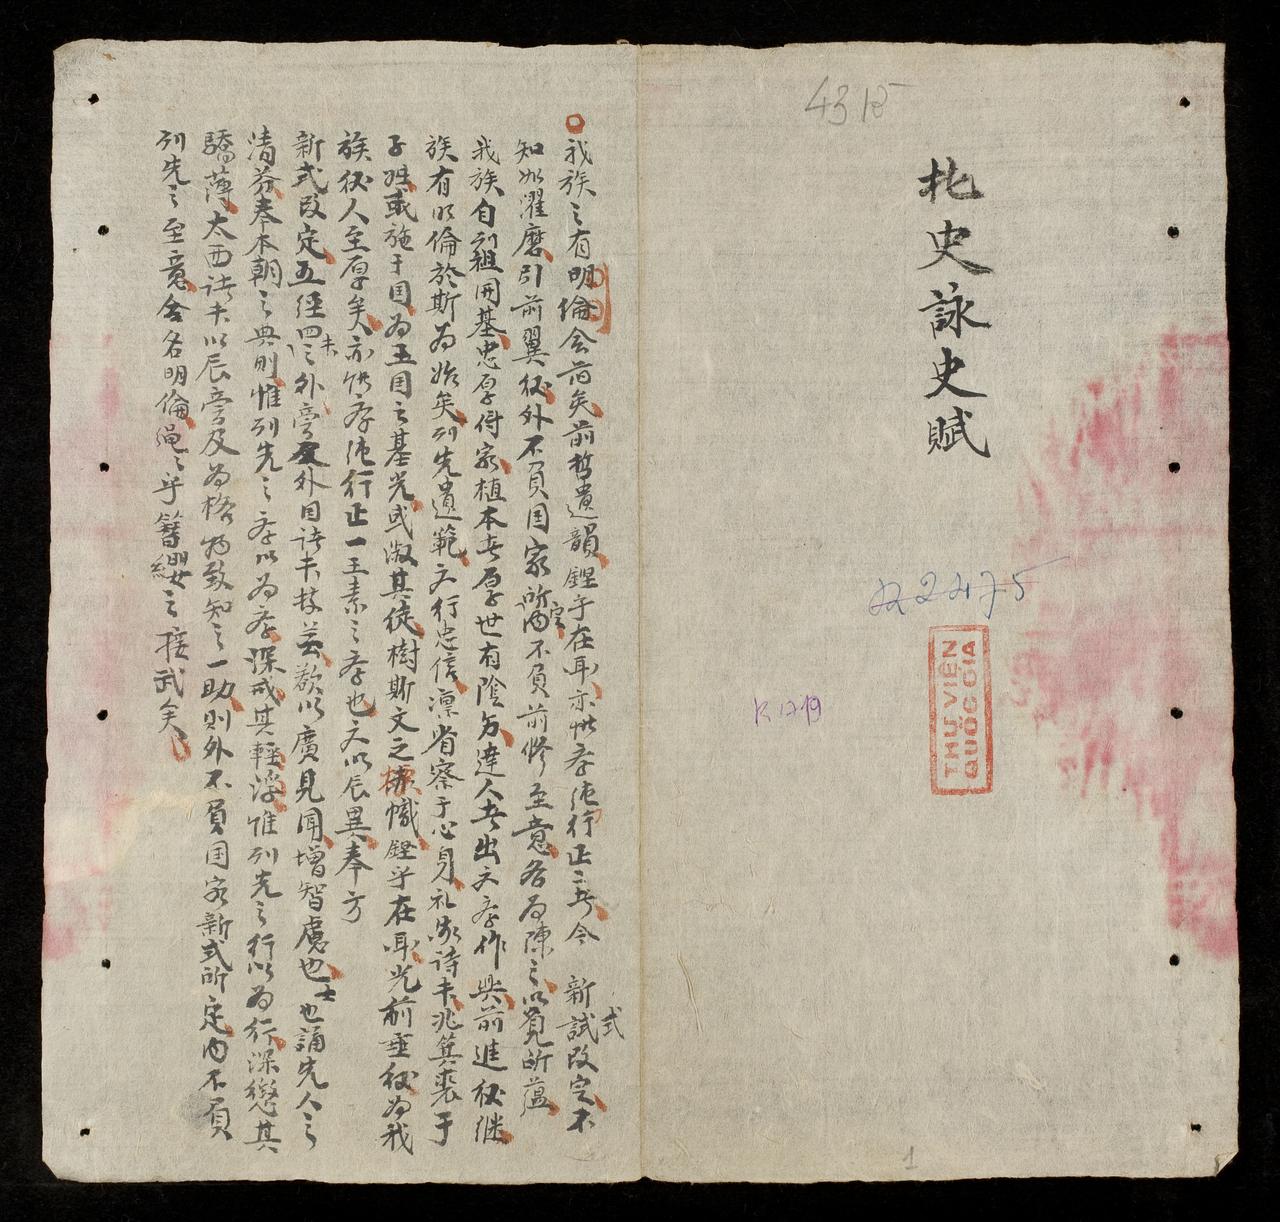 4315
北史詠史賦
R2475
THƯ VIỆN
QUỐC GIA
R1719
我族之有明倫会尚矣前哲遺韻鏗乎在耳亦惟孝德行正二步今 新試式改定不
知如濯磨引前翼後外不負国家所定内不負前修至意各為陳之以覓所蘊
我族自列祖開基忠厚传家植本者厚世有陰方達人者出文孝作興前進後继
族有以倫於斯為始矣列先遺範文行忠信凛省察于心身礼家詩未兆箕裘于
子姓或施于国為王国之基光或淑其徒樹斯文之標幟鏗乎在耳光前垂後為我
族後人至厚矣亦惟孝德行正一王素之孝也又以辰異奉方
新式改定五經四之外旁及外国諸未技芸欲以廣見聞增智慮也士也誦先人之
清芬奉本朝之典則惟列先之孝以為孝深戒其輕浮惟列先之行以為行深懲其
驕薄太西諸未以辰旁及為格物致知之一助則外不負国家新式所定内不負
列先之至意會名明倫绳之乎簪纓之接武矣
1